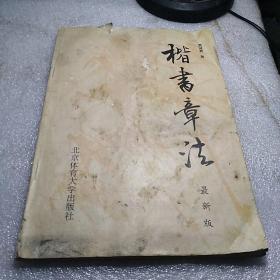 楷书章法
最新版
北京体育大学出版社